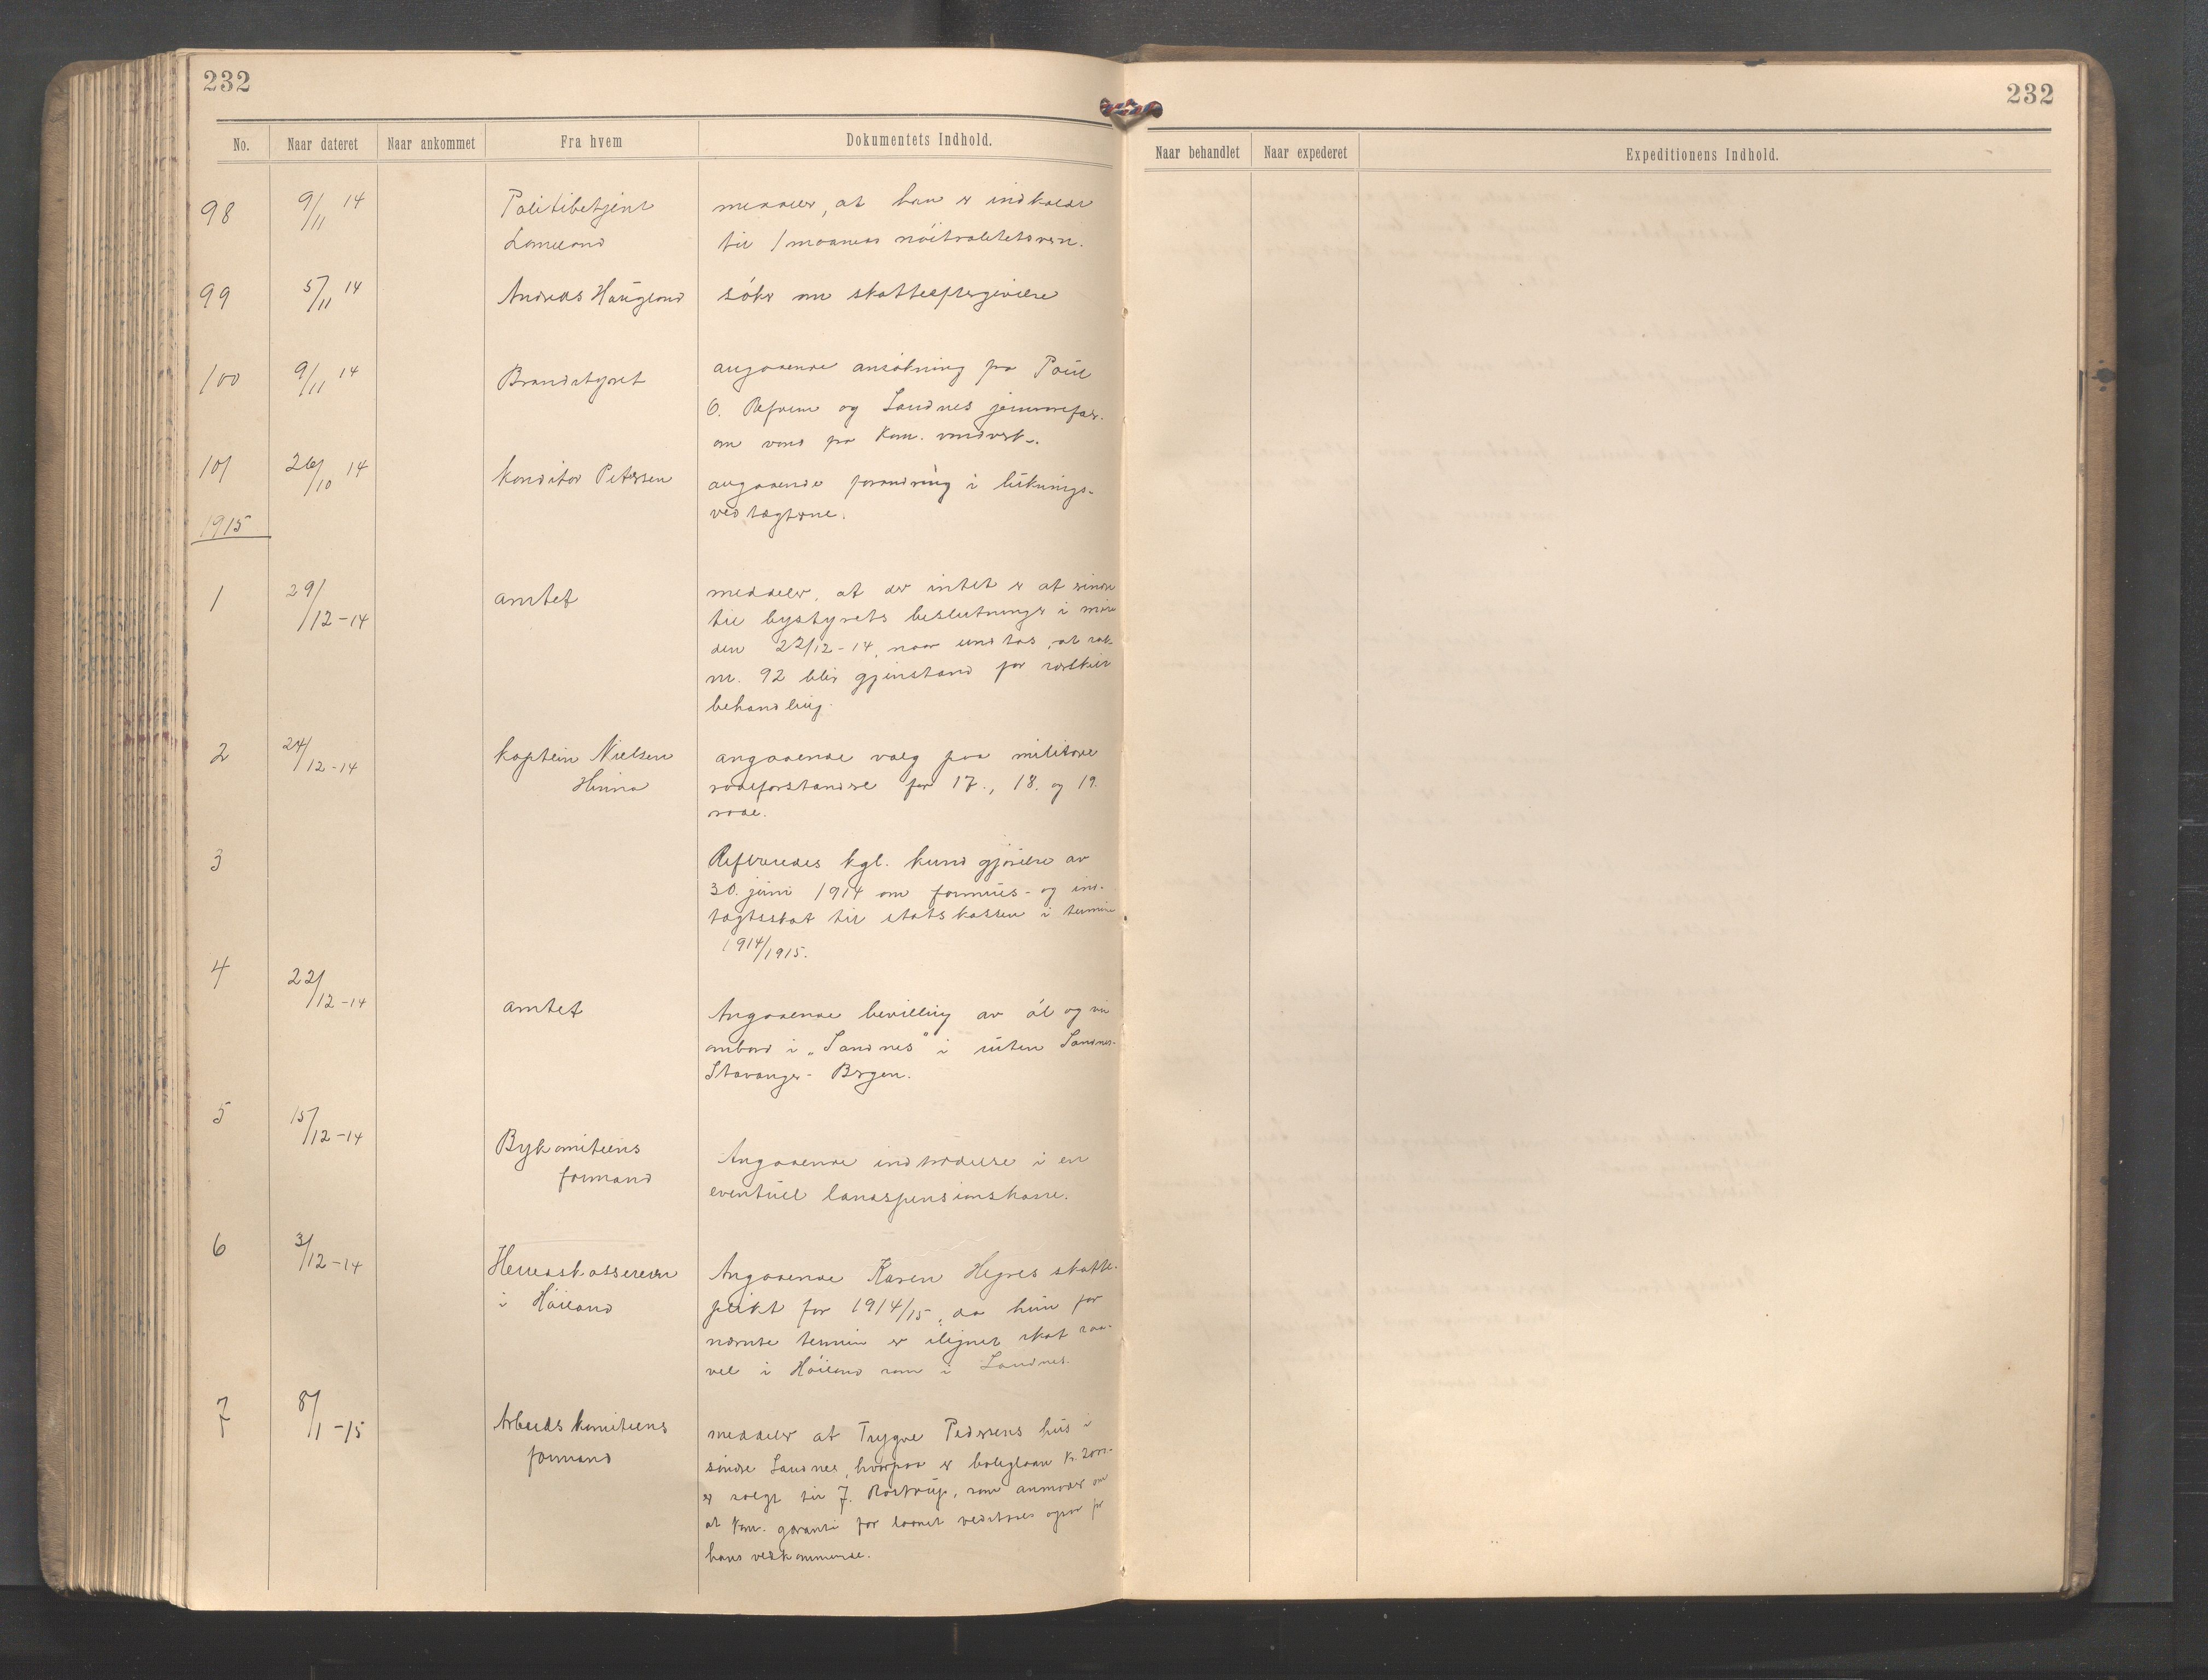 232
232
No. Naar dateret Naar ankommet Fra hvem Dokumentets Indhold.
Naar behandlet Naar expederet Expeditionens Indhold.
98 9/11 14 Politibetjent meddeler, at han er indkaldt
til 1 maaneds nöitralitetsvern.
99 5/11 14 Andreas Haugland söker om skatteeftergivelse
100 9/11 14 Brandstyret angaaende ansökning fra Paul
O. Refsum og Sandnes
om vand fra Kom. vandverk.
101 26/10 14 Konditor Petersen angaaende forandring i liknings-
vedtægterne.
1915
1 29/12-14 amtet meddeler, at der intet er at erindre
til bystyrets beslutninger i möte
den 22/12-14, naar undtas, at sak
nr. 92 blir gjenstand for særskilt
behandling.
2 24/12-14 Kaptein Nielsen angaaende valg paa militære
Hinna rodeforstandere for 17., 18. og 19.
rode.
3 Refereredes kgl. kundgjörelse av
30. juni 1914 om formues- og ind-
tægtsskat til statskassen i termin
1914/1915.
4 22/12-14 amtet Angaaende bevilling av öl og vin
ombord i "Sandnes" i ruten Sandnes-
Stavanger-Bergen.
5 15/12-14 Bykomiteens Angaaende indtrædelse i en
formand eventuell landspensionskasse.
6 3/12-14 Herredskassereren Angaaende Karen Hegres skatte-
i Höiland plikt for 1914/15, da hun for
nævnte termin er ilignet skat saa-
vel i Höiland som i Sandnes.
7 8/1-15 Arbeidskomiteens meddeler at Trygve Pedersens hus i
formand söndre Sandnes, hvorpaa er boliglaan Kr.
er solgt til J. Rostrup, som anmoder om
at Kom. garanti for laanet vedtages ogsaa for
hans vedkommende.